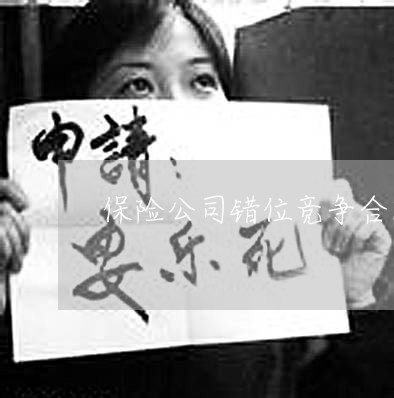 申請：
保险公司错位竞争合
安乐死